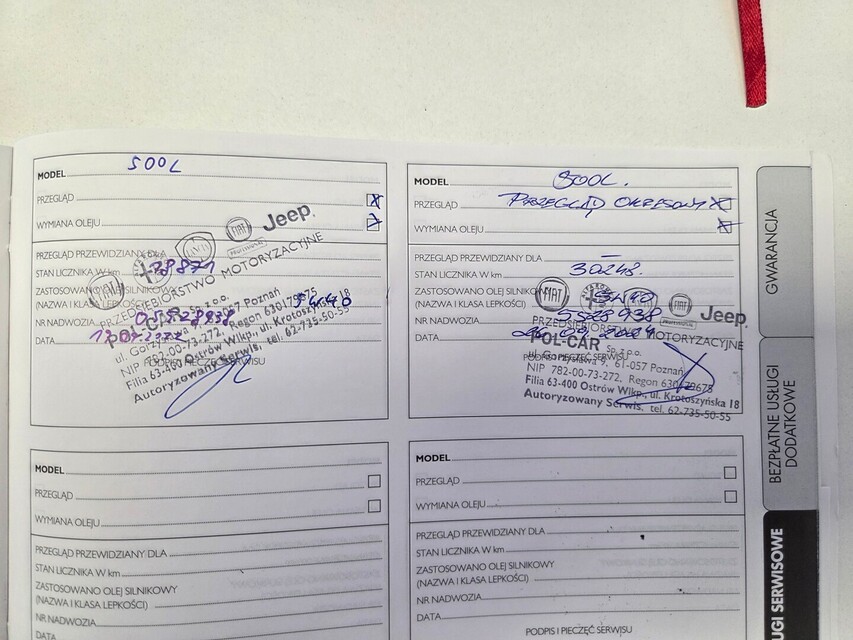 MODEL 500L
PRZEGLĄD X
WYMIANA OLEJU X
PRZEGLĄD PRZEWIDZIANY DLA
STAN LICZNIKA W km 28871
ZASTOSOWANO OLEJ SILNIKOWY
(NAZWA I KLASA LEPKOŚCI) 5W40
NR NADWOZIA 05528938
DATA
PODPIS I PIECZĘĆ SERWISU
FIAT LANCIA FIAT PROFESSIONAL Jeep
PRZEDSIĘBIORSTWO MOTORYZACYJNE
POL-CAR Sp. z o.o.
ul. Gorzysława 9, 61-057 Poznań
NIP 782-00-73-272, Regon 630179675
Filia 63-400 Ostrów Wlkp., ul. Krotoszyńska 18
Autoryzowany Serwis, tel. 62-735-50-55
MODEL 500L.
PRZEGLĄD PRZEGLĄD OKRESOWY X
WYMIANA OLEJU X
PRZEGLĄD PRZEWIDZIANY DLA –
STAN LICZNIKA W km 30248.
ZASTOSOWANO OLEJ SILNIKOWY
(NAZWA I KLASA LEPKOŚCI) 5W40
NR NADWOZIA 5528938
DATA
PODPIS I PIECZĘĆ SERWISU
FIAT Jeep
PRZEDSIĘBIORSTWO MOTORYZACYJNE
POL-CAR Sp. z o.o.
ul. Gorzysława 9, 61-057 Poznań
NIP 782-00-73-272, Regon 630179675
Filia 63-400 Ostrów Wlkp., ul. Krotoszyńska 18
Autoryzowany Serwis, tel. 62-735-50-55
MODEL
PRZEGLĄD
WYMIANA OLEJU
PRZEGLĄD PRZEWIDZIANY DLA
STAN LICZNIKA W km
ZASTOSOWANO OLEJ SILNIKOWY
(NAZWA I KLASA LEPKOŚCI)
NR NADWOZIA
DATA
MODEL
PRZEGLĄD
WYMIANA OLEJU
PRZEGLĄD PRZEWIDZIANY DLA
STAN LICZNIKA W km
ZASTOSOWANO OLEJ SILNIKOWY
(NAZWA I KLASA LEPKOŚCI)
NR NADWOZIA
DATA
PODPIS I PIECZĘĆ SERWISU
GWARANCJA
BEZPŁATNE USŁUGI
DODATKOWE
UGI SERWISOWE